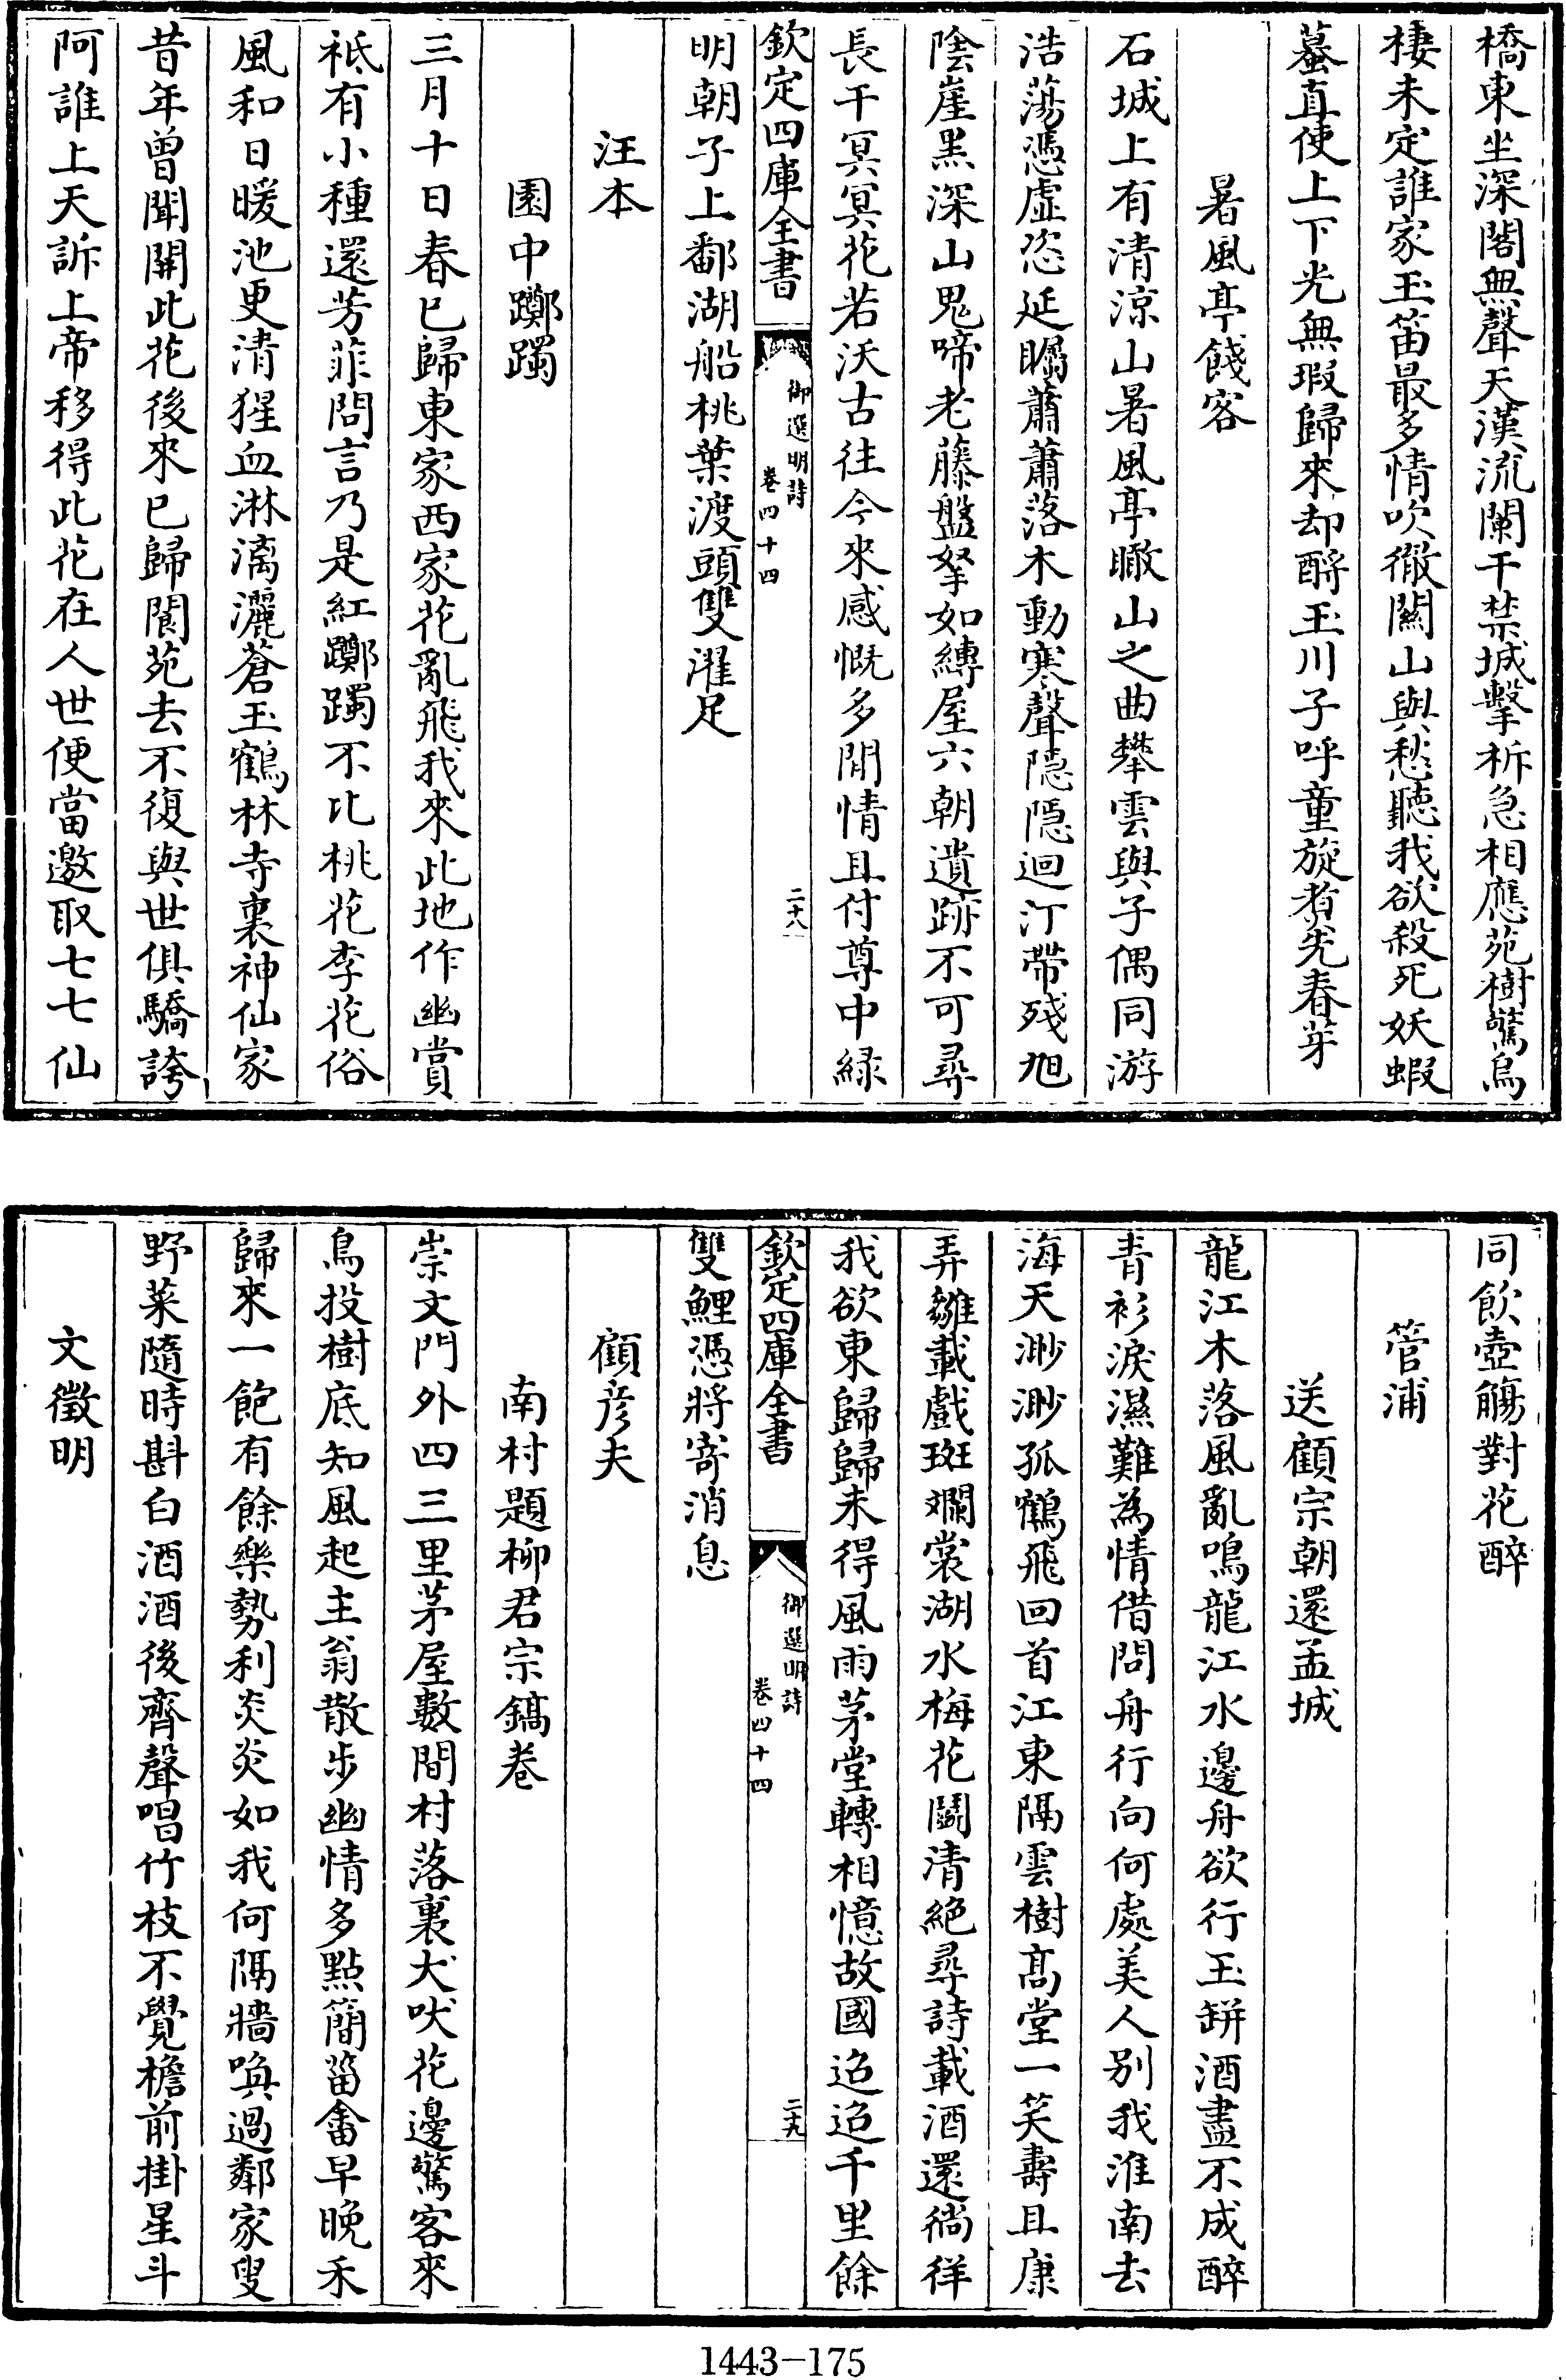 橋東坐深閣無聲天漢流闌干禁城擊柝急相應苑樹驚烏
棲未定誰家玉笛最多情吹徹關山與愁聽我欲殺死妖蝦
蟇直使上下光無瑕歸來却酹玉川子呼童旋煑先春芽
暑風亭餞客
石城上有清涼山暑風亭瞰山之曲攀雲與子偶同游
浩蕩憑虛恣延矚蕭蕭落木動寒聲隱隱迴汀帶殘旭
陰崖黑深山鬼啼老藤盤拏如縛屋六朝遺跡不可尋
長干冥冥花若沃古往今來感慨多閒情且付尊中緑
欽定四庫全書
御選明詩
卷四十四
二十八
明朝子上鄱湖船桃葉渡頭雙濯足
汪本
園中躑躅
三月十日春已歸東家西家花亂飛我來此地作幽賞
祗有小種還芳菲問言乃是紅躑躅不比桃花李花俗
風和日暖池更清猩血淋漓灑蒼玉鶴林寺裏神仙家
昔年曾聞開此花後來已歸閬苑去不復與世俱驕誇
阿誰上天訴上帝移得此花在人世便當邀取七七仙
同飲壺觴對花醉
管浦
送顧宗朝還孟城
龍江木落風亂鳴龍江水邊舟欲行玉缾酒盡不成醉
青衫淚濕難為情借問舟行向何處美人别我淮南去
海天渺渺孤鶴飛回首江東隔雲樹髙堂一笑壽且康
弄雛載戲斑斕裳湖水梅花鬭清絶尋詩載酒還徜徉
我欲東歸歸未得風雨茅堂轉相憶故國迢迢千里餘
欽定四庫全書
御選明詩
卷四十四
二十九
雙鯉憑將寄消息
顧彦夫
南村題柳君宗鎬卷
崇文門外四三里茅屋數間村落裏犬吠花邊驚客來
鳥投樹底知風起主翁散步幽情多點簡菑畬早晚禾
歸來一飽有餘樂勢利炎炎如我何隔牆喚過鄰家叟
野菜隨時斟白酒酒後齊聲唱竹枝不覺檐前掛星斗
文徵明
1443-175